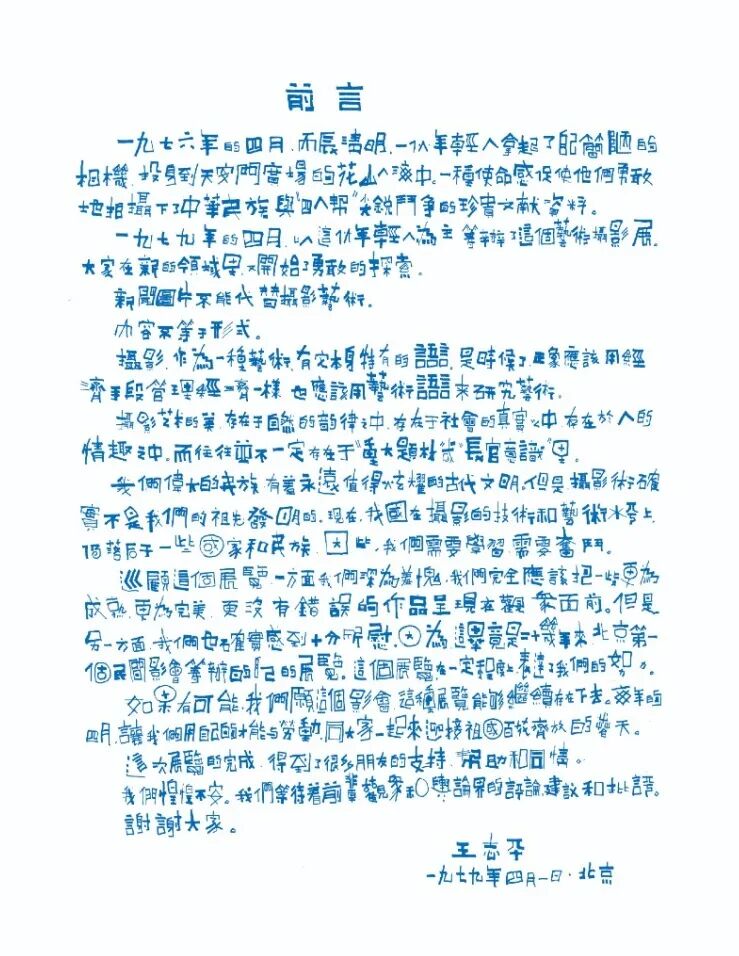 前言
一九七六年的四月,丙辰清明,一伙年輕人拿起了配簡陋的
相機,投身到天安門廣場的花山人海中。一種使命感促使他們勇敢
地拍攝下了中華民族與"四人幫"尖銳鬥争的珍貴文献資料。
一九七九年的四月,以這伙年輕人為主,籌辦了這個藝術攝影展。
大家在新的領域里,又開始了勇敢的探索。
新聞圖片不能代替攝影藝術。
内容不等于形式。
攝影,作為一種藝術,有它本身特有的語言。是時候了,正象應該用經
濟手段管理經濟一樣,也應該用藝術語言來研究藝術。
攝影艺术的美,存在于自然的韵律之中,存在于社會的真實之中,存在於人的
情趣之中。而往往並不一定存在于"重大題材"或"長官意識"里。
我們偉大的民族,有着永遠值得炫耀的古代文明。但是攝影術確
實不是我們的祖先發明的。現在,我國在攝影的技術和藝術水平上,
落后于一些國家和民族,因此,我們需要學習,需要奮鬥。
巡顧這個展覽,一方面我們深為羞愧,我們完全應該把一些更為
成熟,更為完美,更没有錯誤的作品呈現在觀衆面前。但是
另一方面,我們也確實感到十分欣慰,因為這畢竟是二十幾年來,北京第一
個民間影會籌辦的自己的展覽。這個展覽在一定程度上表達了我們的努力。
如果有可能,我們願這個影會,這種展覽能够繼續存在下去。每年的
四月,讓我們用自己的才能与勞動,同大家一起來迎接祖國百花齊放的春天。
這次展覽的完成,得到了很多朋友的支持,幫助和同情。
我們惶惶不安。我們等待着前輩、觀衆和輿論界的評論、建議和批評。
謝謝大家。
王志平
一九七九年四月一日·北京